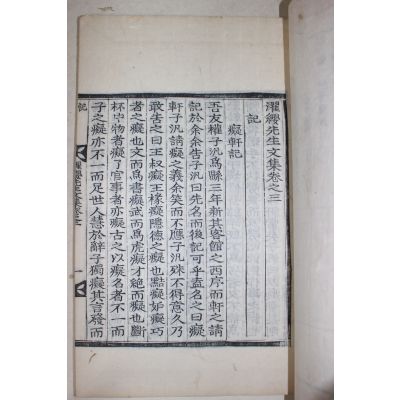 濯纓先生文集卷之三
記
癡軒記
吾友權子汎爲縣三年新其客館之西序而軒之請
記於余余告子汎曰先名而後記可乎盍名之曰癡
軒子汎請癡之義余笑而不應子汎殊不得意久乃
敢告之曰王叔癡王掾癡隱德之癡也點癡妬癡巧
者之癡也文而爲書癡武而爲虎癡才絶而癡也斷
杯中物者癡了官事者亦癡古之以癡名者不一而
子之癡亦不一而足世人慧於辭子獨癡其言發而
記
濯纓先生文集卷之三
一